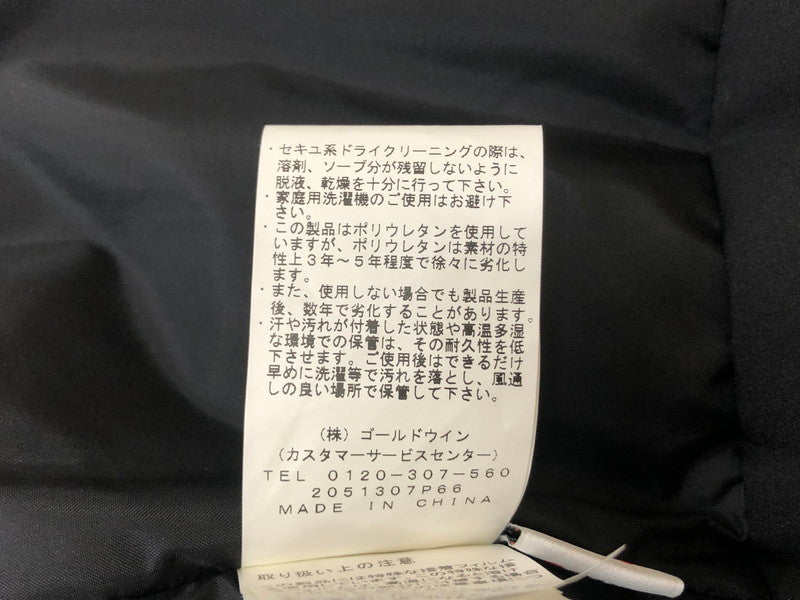 ・セキユ系ドライクリーニングの際は、
溶剤、ソープ分が残留しないように
脱液、乾燥を十分に行って下さい。
・家庭用洗濯機のご使用はお避け下
さい。
・この製品はポリウレタンを使用して
いますが、ポリウレタンは素材の特
性上３年～５年程度で徐々に劣化し
ます。
・また、使用しない場合でも製品生産
後、数年で劣化することがあります。
・汗や汚れが付着した状態や高温多湿
な環境での保管は、その耐久性を低
下させます。ご使用後はできるだけ
早めに洗濯等で汚れを落とし、風通
しの良い場所で保管して下さい。
（株）ゴールドウイン
（カスタマーサービスセンター）
TEL 0120-307-560
2051307P66
MADE IN CHINA
取り扱い上の注意
この製品には特殊な接着フィルム